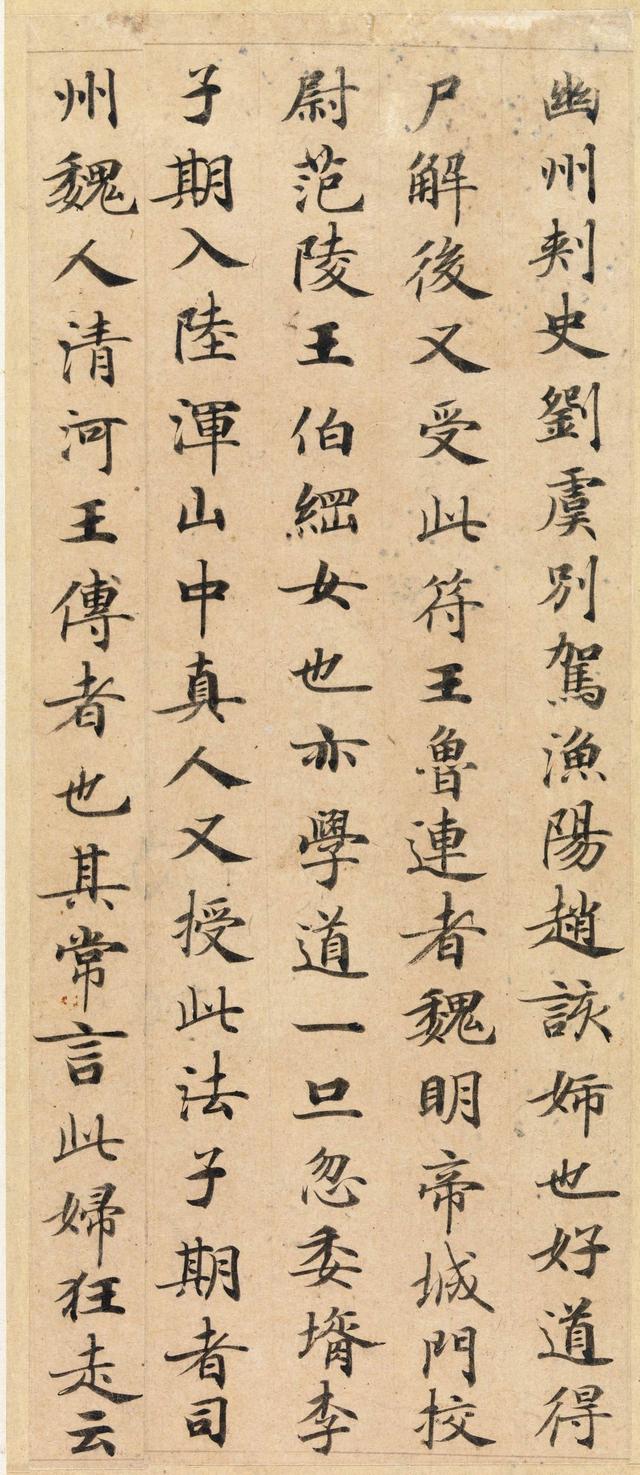 幽州刾史劉虞別駕漁陽趙該姊也好道得
尸解後又受此符王魯連者魏明帝城門挍
尉范陵王伯綱女也亦學道一旦忽委壻李
子期入陸渾山中真人又授此法子期者司
州魏人清河王傅者也其常言此婦狂走云